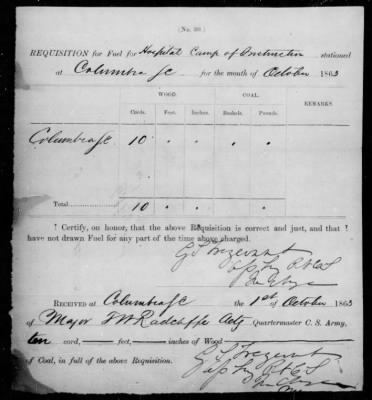 (No. 39.)
REQUISITION for Fuel for Hospital Camp of Instruction stationed
at Columbia SC for the month of October 1863
WOOD. COAL. REMARKS.
Cords. Feet. Inches. Bushels. Pounds.
Columbia SC 10 " " " "
Total 10 " " " "
I Certify, on honor, that the above Requisition is correct and just, and that I
have not drawn Fuel for any part of the time above charged.
Trezevant
RECEIVED at Columbia SC the 1st of October 1863
of Major Radcliffe Actg Quartermaster C. S. Army,
ten cord, — feet, — inches of Wood
of Coal, in full of the above Requisition.
Trezevant